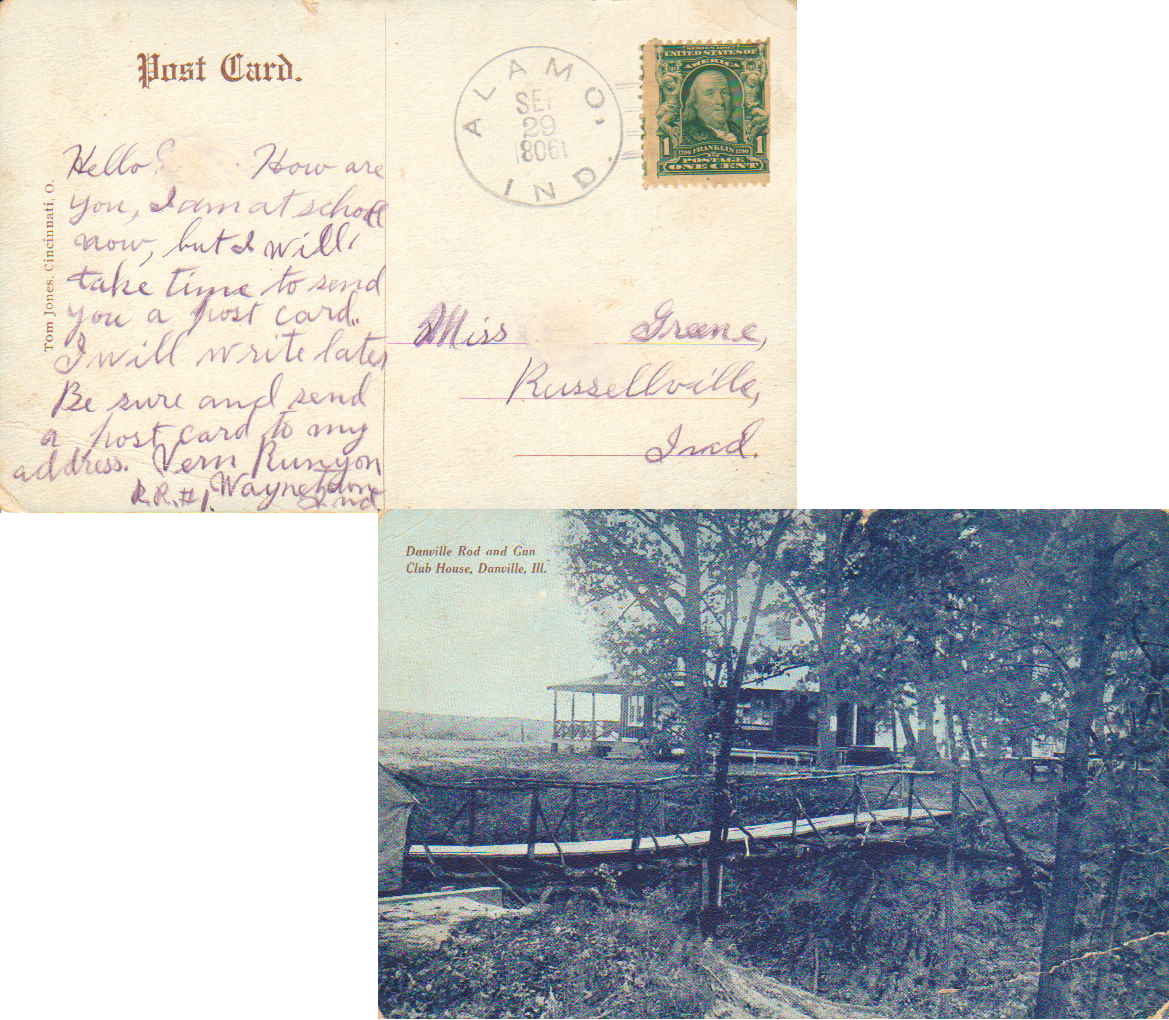 Post Card.
ALAMO,
IND.
SEP
29
1908
SERIES 1902
UNITED STATES OF
AMERICA
1 1
1706 FRANKLIN 1790
POSTAGE
ONE CENT
Tom Jones. Cincinnati, O.
Hello How are
you, I am at scholl
now, but I will
take time to send
you a post card.
I will write later
Be sure and send
a post card to my
address. Vern Runyon
R.R.#1. Waynetown
Ind
Miss Greene,
Russellville,
Ind.
Danville Rod and Gun
Club House, Danville, Ill.